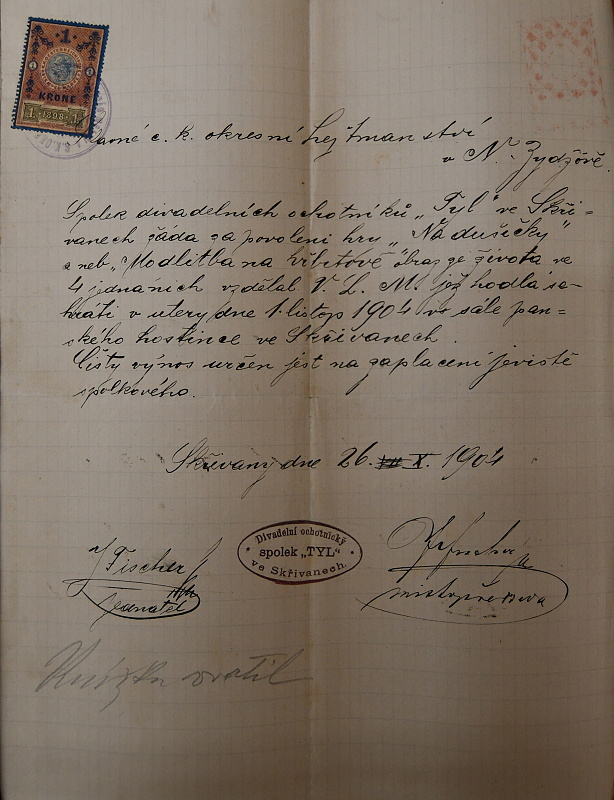 1
KRONE
1 1898 1
slavné c. k. okresní hejtmanství
v N. Bydžově.
Spolek divadelních ochotníků „Tyl" ve Skři-
vanech žáda za povoleni hry „Na dušičky"
a neb „Modlitba na hřbitově obraz ze života ve
4 jednaních vzdělal V. L. M. jež hodlá se-
hráti v utery dne 1. listop 1904 ve sále pan-
ského hostince ve Skřivanech.
Čistý výnos určen jest na zaplacení jeviště
spolkového.
Skřivany dne 26. X. 1904
J Fischer
jednatel
Divadelní ochotnický
spolek „TYL"
ve Skřivanech.
místopředseda
Knížku vrátil